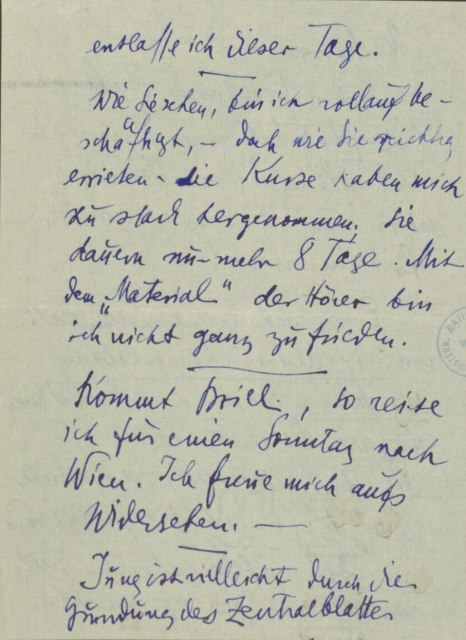 entlasse ich dieser Tage.
Wie Sie sehen, bin ich vollauf be-
schäftigt, – doch wie Sie richtig
errieten – die Kurse haben mich
zu stark hergenommen. Sie
dauern nur mehr 8 Tage. Mit
dem „Material“ der Hörer bin
ich nicht ganz zufrieden.
Kommt Brill, so reise
ich für einen Sonntag nach
Wien. Ich freue mich aufs
Widersehen. —
Jung ist vielleicht durch die
Gründung des Zentralblattes